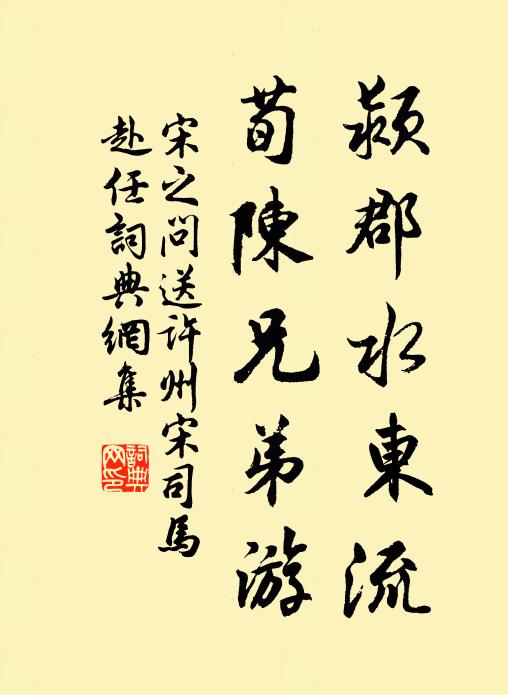 潁郡水東流
荀陳兄弟游
宋之問送許州宋司馬
赴任詞典網集
詞典
网印